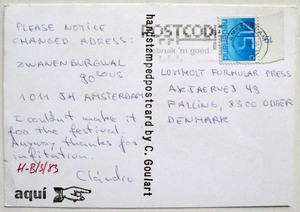 PLEASE NOTICE
CHANGED ADRESS:
ZWANENBURGWAL
90 SOUS
1011 JH AMSTERDAM
I couldn't make it
for the festival.
Anyway thanks for
infitation.
Cláudio
H-B/3/83
aquí
handstampedpostcard by C. Goulart
POSTCODE
gebruik 'm goed.
45c
LOMHOLT FORMULAR PRESS
AKJAERVEJ 49
FALLING, 8300 ODDER
DENMARK